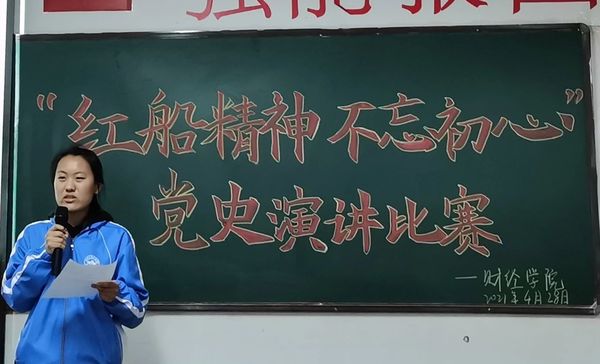 强能报国
“红船精神 不忘初心”
党史演讲比赛
——财经学院
2021年4月28日